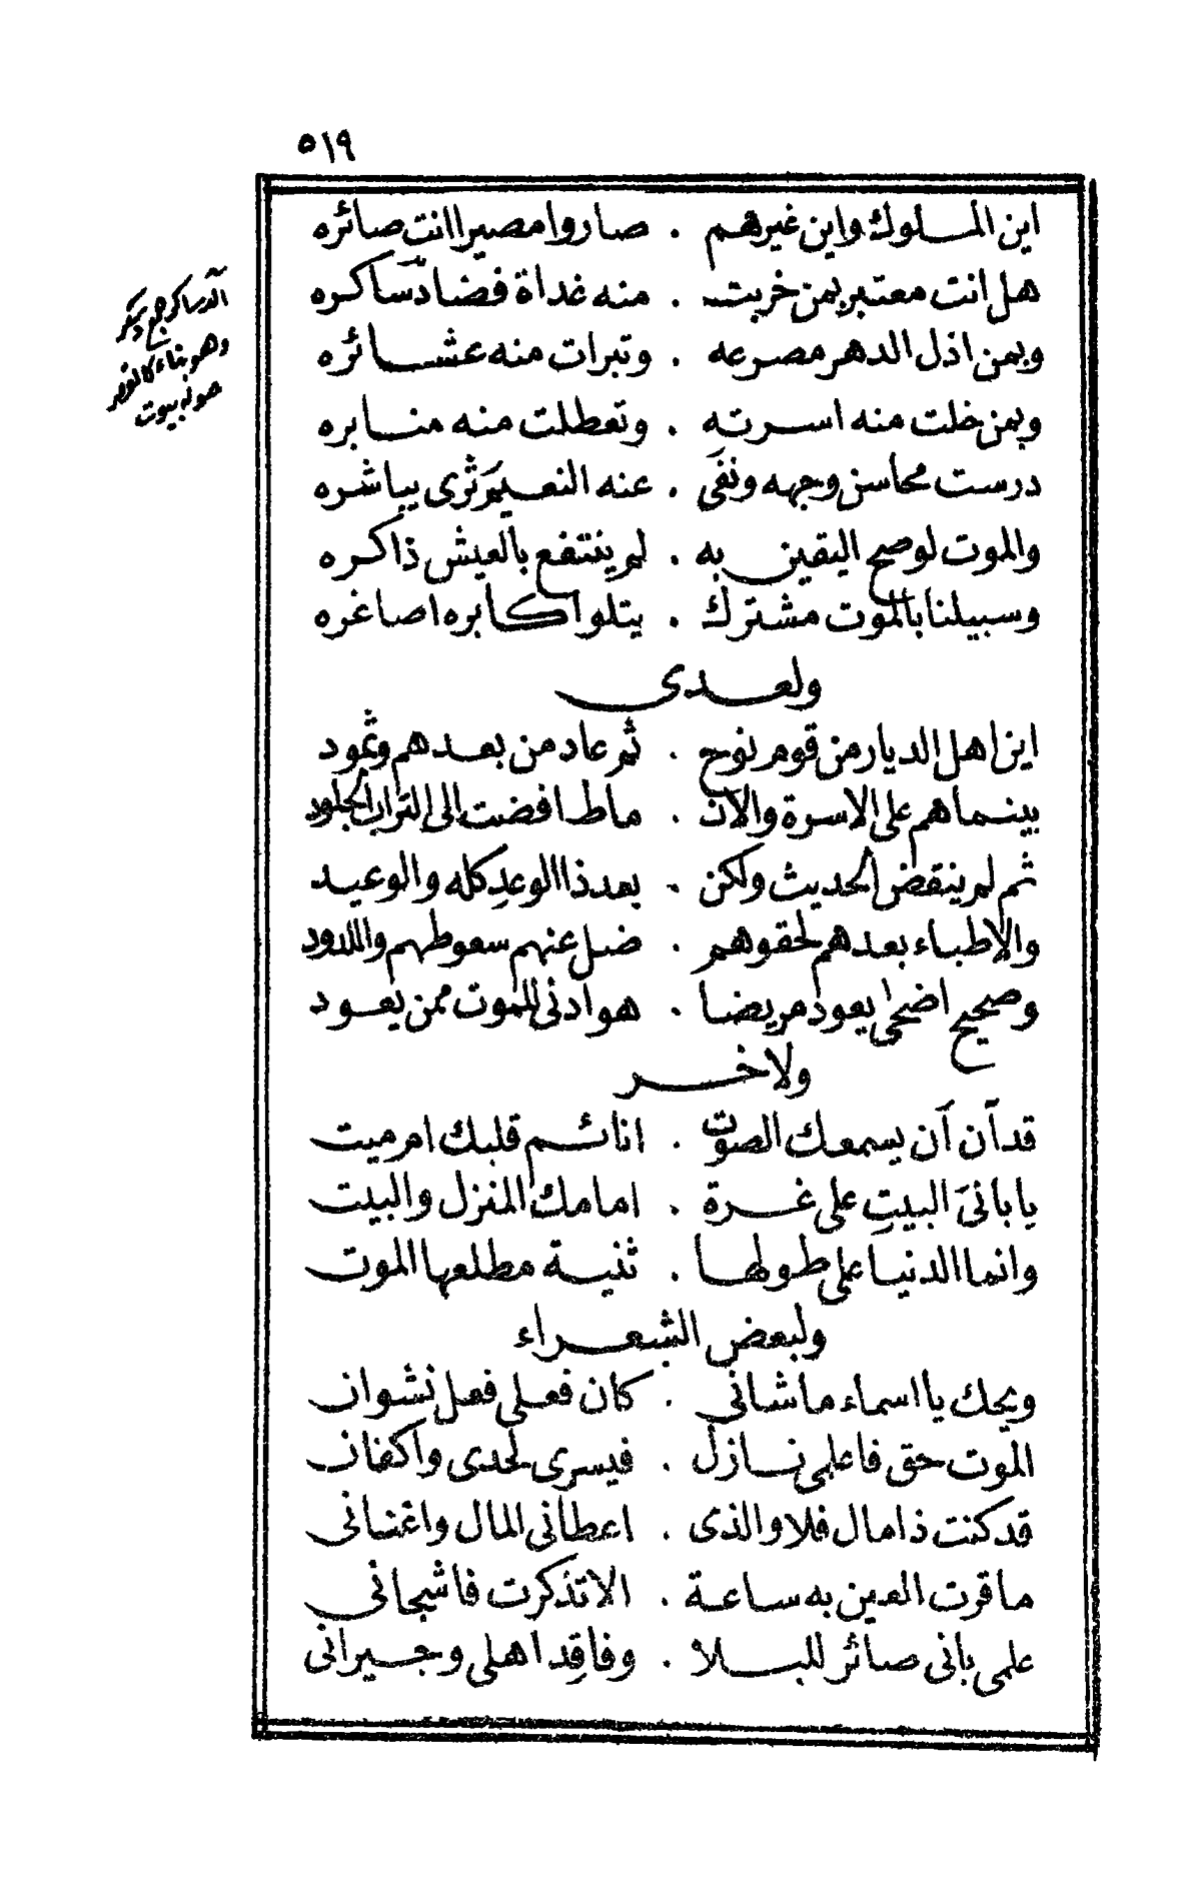 ٥١٩
اين الملوك واين غيرهم . صاروا مصيرا انت صائره
هل انت معتبر بمن خربت . منه غداة قضا دساكره
وبمن اذل الدهر مصرعه . وتبرات منه عشائره
وبمن خلت منه اسرته . وتعطلت منه منابره
درست محاسن وجهه ونفى . عنه النعيم ثرى يباشره
والموت لو صح اليقين به . لم ينتفع بالعيش ذاكره
وسبيلنا بالموت مشترك . يتلوا كابره اصاغره
ولعدى
اين اهل الديار من قوم نوح . ثم عاد من بعدهم وثمود
بينما هم على الاسرة والان . ماط افضت الى التراب الجلود
ثم لم ينقض الحديث ولكن . بعد ذا الوعدِ كله والوعيد
والاطباء بعدهم لحقوهم . ضل عنهم سعوطهم واللدود
وصحيح اضحى يعود مريضا . هو ادنى للموت ممن يعود
ولاخر
قد آن آن يسمعك الصوت . انائم قلبك ام ميت
يا بانىَ البيتِ على غرة . امامك المنزل والبيت
وانما الدنيا على طولها . ثنية مطلعها الموت
ولبعض الشعراء
ويحك يا اسماء ما شانى . كان فعلى فعل نشوان
الموت حق فاعلمى نازل . فيسرى لحدى واكفان
قد كنت ذا مال فلا والذى . اعطانى المال واغنانى
ما قرت العين به ساعة . الا تذكرت فاشجانى
علمى بانى صائر للبلا . وفاقِد اهلى وجيرانى
الدساكر جمع دسكر
وهو بناء كالقصر
حوله بيوت